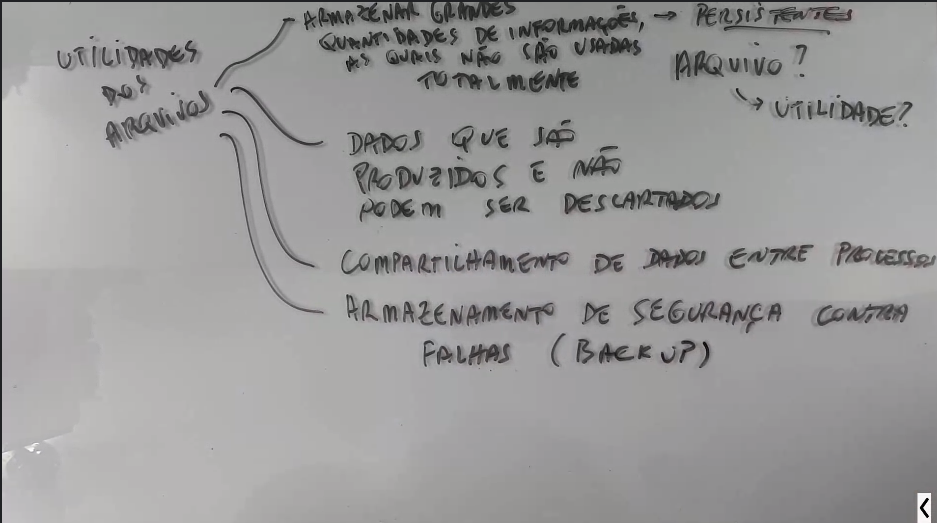 UTILIDADES
DOS
ARQUIVOS
ARMAZENAR GRANDES
QUANTIDADES DE INFORMAÇÕES,
AS QUAIS NÃO SÃO USADAS
TOTALMENTE
→ PERSISTENTES
ARQUIVO?
→ UTILIDADE?
DADOS QUE SÃO
PRODUZIDOS E NÃO
PODEM SER DESCARTADOS
COMPARTILHAMENTO DE DADOS ENTRE PROCESSOS
ARMAZENAMENTO DE SEGURANÇA CONTRA
FALHAS (BACKUP)